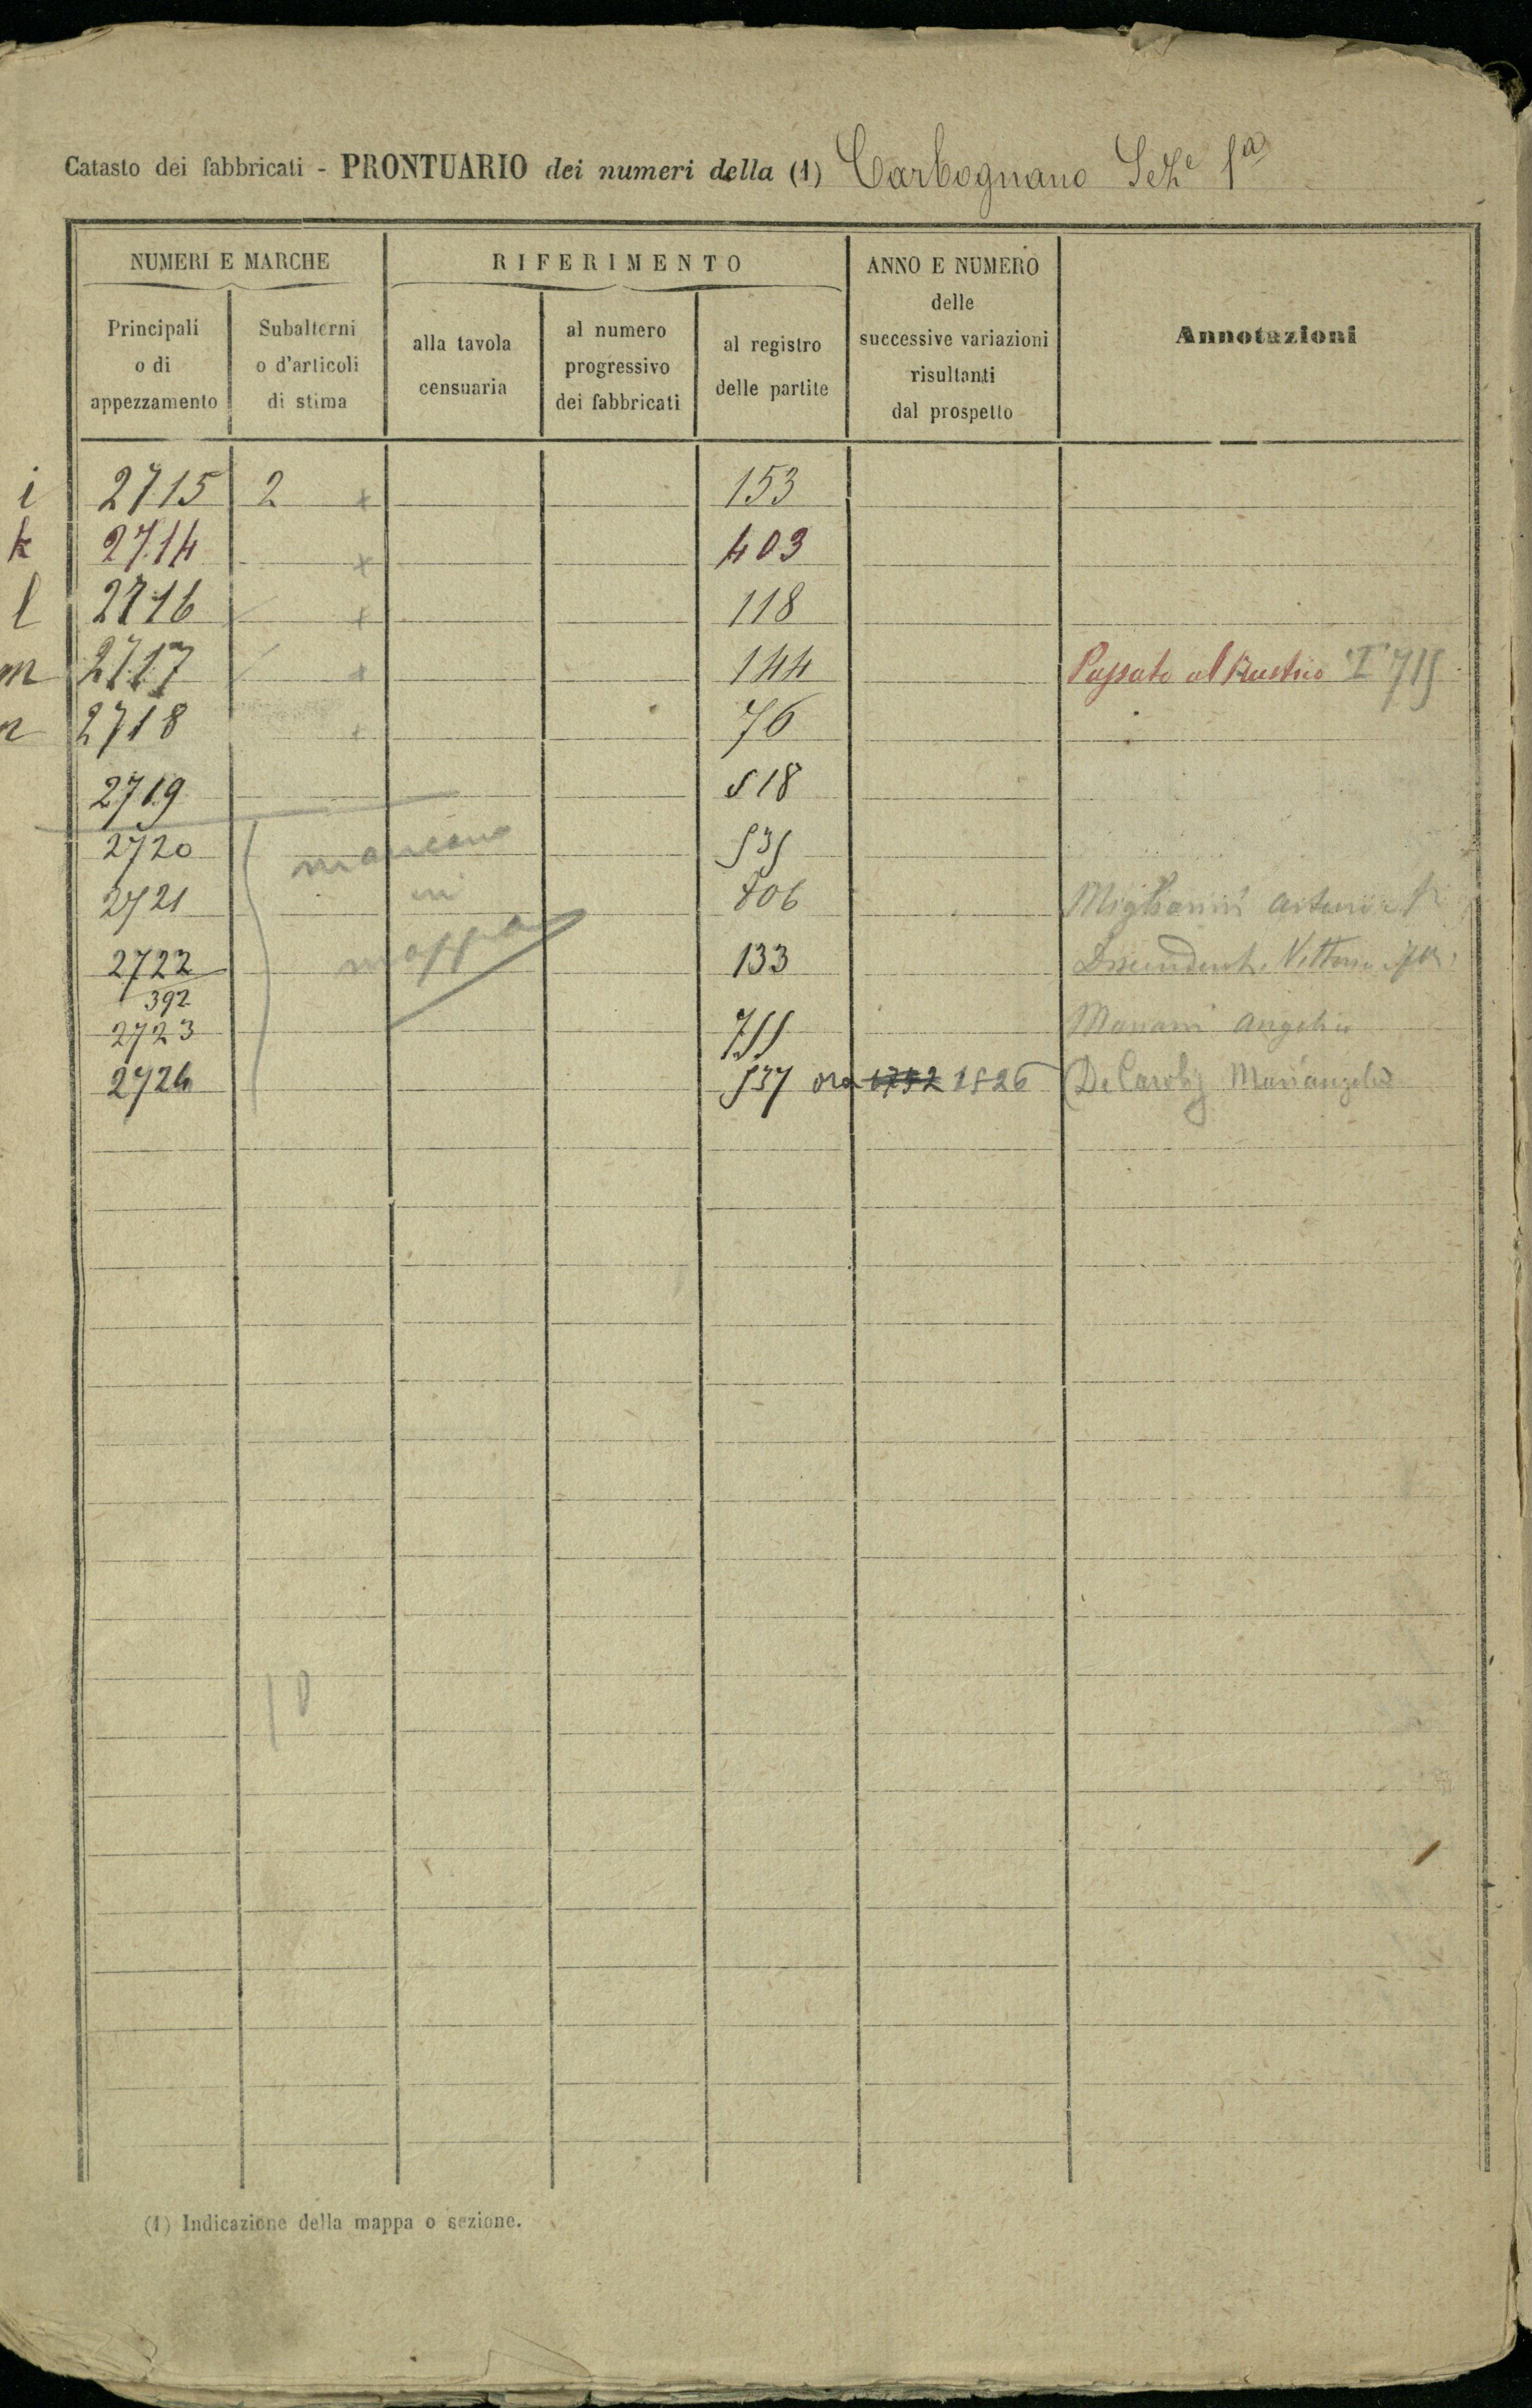 Catasto dei fabbricati - PRONTUARIO dei numeri della (1) Carbognano Seze 1a
NUMERI E MARCHE
Principali
o di
appezzamento
Subalterni
o d'articoli
di stima
RIFERIMENTO
alla tavola
censuaria
al numero
progressivo
dei fabbricati
al registro
delle partite
ANNO E NUMERO
delle
successive variazioni
risultanti
dal prospetto
Annotazioni
i 2715 2 + 153
k 2714 + 403
l 2716 + 118
m 2717 + 144 Passato al Rustico I 715
n 2718 + 76
2719 518
2720 mancano 535
2721 in 806 Migliarini
2722 mappa 133 Vittoria
392
2723 755 Mariani Angelica
2724 537 ora 1752 1826 De Carolis Mariangela
10
(1) Indicazione della mappa o sezione.